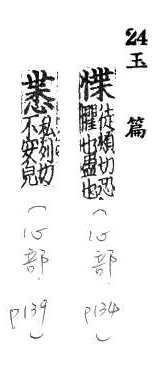 24 玉篇
惵 徒頰切恐
懼也 也
(心部 p134)
私列切
不安皃
(心部 p139)